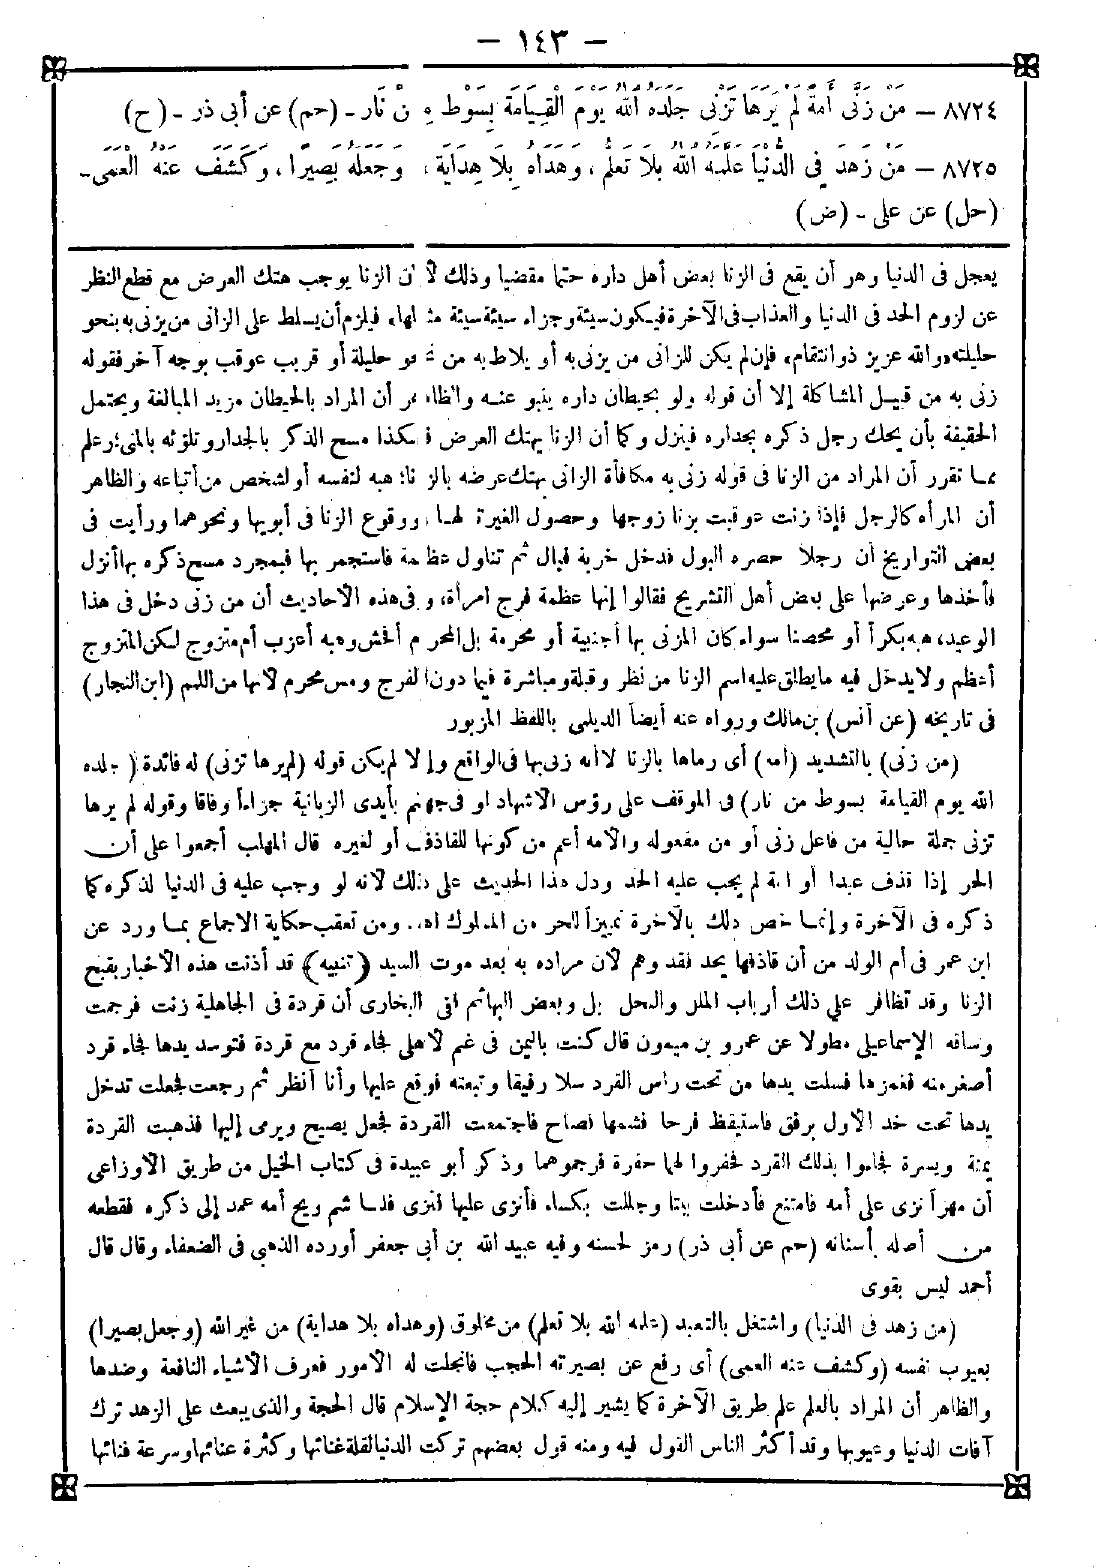 - ١٤٣ -
٨٧٢٤ - مَنْ زَنَّى أَمَةً لَمْ يَرَهَا تَزْنِى جَلَدَهُ اللهُ يَوْمَ الْقِيَامَةِ بِسَوْطٍ مِنْ نَارٍ - (حم) عن أبى ذر - (ح)
٨٧٢٥ - مَنْ زَهِدَ فِى الدُّنْيَا عَلَّمَهُ اللهُ بِلَا تَعَلُّمٍ ، وَهَدَاهُ بِلَا هِدَايَةٍ ، وَجَعَلَهُ بَصِيرًا ، وَكَشَفَ عَنْهُ الْعَمَى -
(حل) عن على - (ض)
يعجل فى الدنيا وهو أن يقع فى الزنا بعض أهل داره حتما مقضيا وذلك لأن الزنا يوجب هتك العرض مع قطع النظر
عن لزوم الحد فى الدنيا والعذاب فى الآخرة فيكون سيئة وجزاء سيئة سيئة مثلها، فيلزم أن يسلط على الزانى من يزنى به بنحو
حليلته «والله عزيز ذو انتقام» فإن لم يكن للزانى من يزنى به أو يلاط به من نحو حليلة أو قريب عوقب بوجه آخر فقوله
زنى به من قبيل المشاكلة إلا أن قوله ولو بحيطان داره ينبو عنه والظاهر أن المراد بالحيطان مزيد المبالغة ويحتمل
الحقيقة بأن يحك رجل ذكره بجداره فينزل وكما أن الزنا يهتك العرض فكذا مسح الذكر بالجدار وتلوثه بالمنى؛ وعلم
مما تقرر أن المراد من الزنا فى قوله زنى به مكافأة الزانى بهتك عرضه بالزنا؛ هبه لنفسه أو لشخص من أتباعه والظاهر
أن المرأة كالرجل فإذا زنت عوقبت بزنا زوجها وحصول الغيرة لها ووقوع الزنا فى أبويها ونحوهما ورأيت فى
بعض التواريخ أن رجلا حصره البول فدخل خربة فبال ثم تناول عظمة فاستجمر بها فبمجرد مسح ذكره بها أنزل
فأخذها وعرضها على بعض أهل التشريح فقالوا إنها عظمة فرج امرأة، وفى هذه الأحاديث أن من زنى دخل فى هذا
الوعيد، هبه بكرا أو محصنا سواء كان المزنى بها أجنبية أو محرمة بل المحرم أفحش وهبه أعزب أم متزوج لكن المتزوج
أعظم ولا يدخل فيه ما يطلق عليه اسم الزنا من نظر وقبلة ومباشرة فيما دون الفرج ومس محرم لأنها من اللمم (ابن النجار)
فى تاريخه (عن أنس) بن مالك ورواه عنه أيضا الديلمى باللفظ المزبور
(من زنى) بالتشديد (أمة) أى رماها بالزنا لا أنه زنى بها فى الواقع وإلا لم يكن قوله (لم يرها تزنى) له فائدة (جلده
الله يوم القيامة بسوط من نار) فى الموقف على رؤس الأشهاد او فى جهنم بأيدى الزبانية جزاءاً وفاقا وقوله لم يرها
تزنى جملة حالية من فاعل زنى أو من مفعوله والأمة أعم من كونها للقاذف أو لغيره قال المهلب أجمعوا على أن
الحر إذا قذف عبدا أو امة لم يجب عليه الحد ودل هذا الحديث على ذلك لأنه لو وجب عليه فى الدنيا لذكره كما
ذكره فى الآخرة وإنما خص ذلك بالآخرة تمييزاً للحر من المملوك اهـ. ومن تعقب حكاية الاجماع بما ورد عن
ابن عمر فى أم الولد من أن قاذفها يحد فقد وهم لأن مراده به بعد موت السيد (تنبيه) قد أذنت هذه الأخبار بقبح
الزنا وقد تظافر على ذلك أرباب الملل والنحل بل وبعض البهائم ففى البخارى أن قردة فى الجاهلية زنت فرجمت
وساقه الإسماعيلى مطولا عن عمرو بن ميمون قال كنت باليمن فى غنم لأهلى فجاء قرد مع قردة فتوسد يدها فجاء قرد
أصغر منه فغمزها فسلت يدها من تحت رأس القرد سلا رفيقا وتبعته فوقع عليها وأنا أنظر ثم رجعت فجعلت تدخل
يدها تحت خد الأول برفق فاستيقظ فزعا فشمها فصاح فاجتمعت القردة فجعل يصيح ويومى إليها فذهبت القردة
يمنة ويسرة فجاءوا بذلك القرد فحفروا لهما حفرة فرجموهما وذكر أبو عبيدة فى كتاب الخيل من طريق الأوزاعى
أن مهراً نزى على أمه فامتنع فأدخلت بيتا وجللت بكساء فأنزى عليها فنزى فلما شم ريح أمه عمد إلى ذكره فقطعه
من أصله بأسنانه (حم عن أبى ذر) رمز لحسنه وفيه عبيد الله بن أبى جعفر أورده الذهبى فى الضعفاء وقال قال
أحمد ليس بقوى
(من زهد فى الدنيا) واشتغل بالتعبد (علمه الله بلا تعلم) من مخلوق (وهداه بلا هداية) من غير الله (وجعل بصيرا)
بعيوب نفسه (وكشف عنه العمى) أى رفع عن بصيرته الحجب فانجلت له الأمور فعرف الأشياء النافعة وضدها
والظاهر أن المراد بالعلم علم طريق الآخرة كما يشير إليه كلام حجة الإسلام قال الحجة والذى يبعث على الزهد ترك
آفات الدنيا وعيوبها وقد أكثر الناس القول فيه ومنه قول بعضهم تركت الدنيا لقلة غنائها وكثرة عنائها وسرعة فنائها